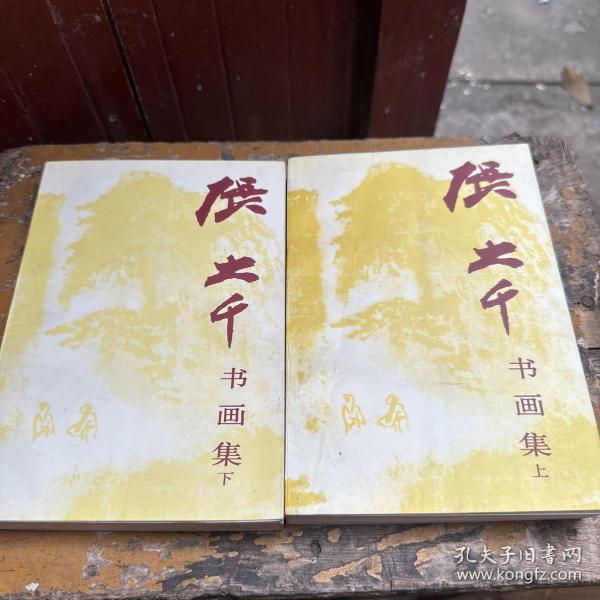 張大千
书画集
下
張大千
书画集
上
孔夫子旧书网
www.kongfz.com